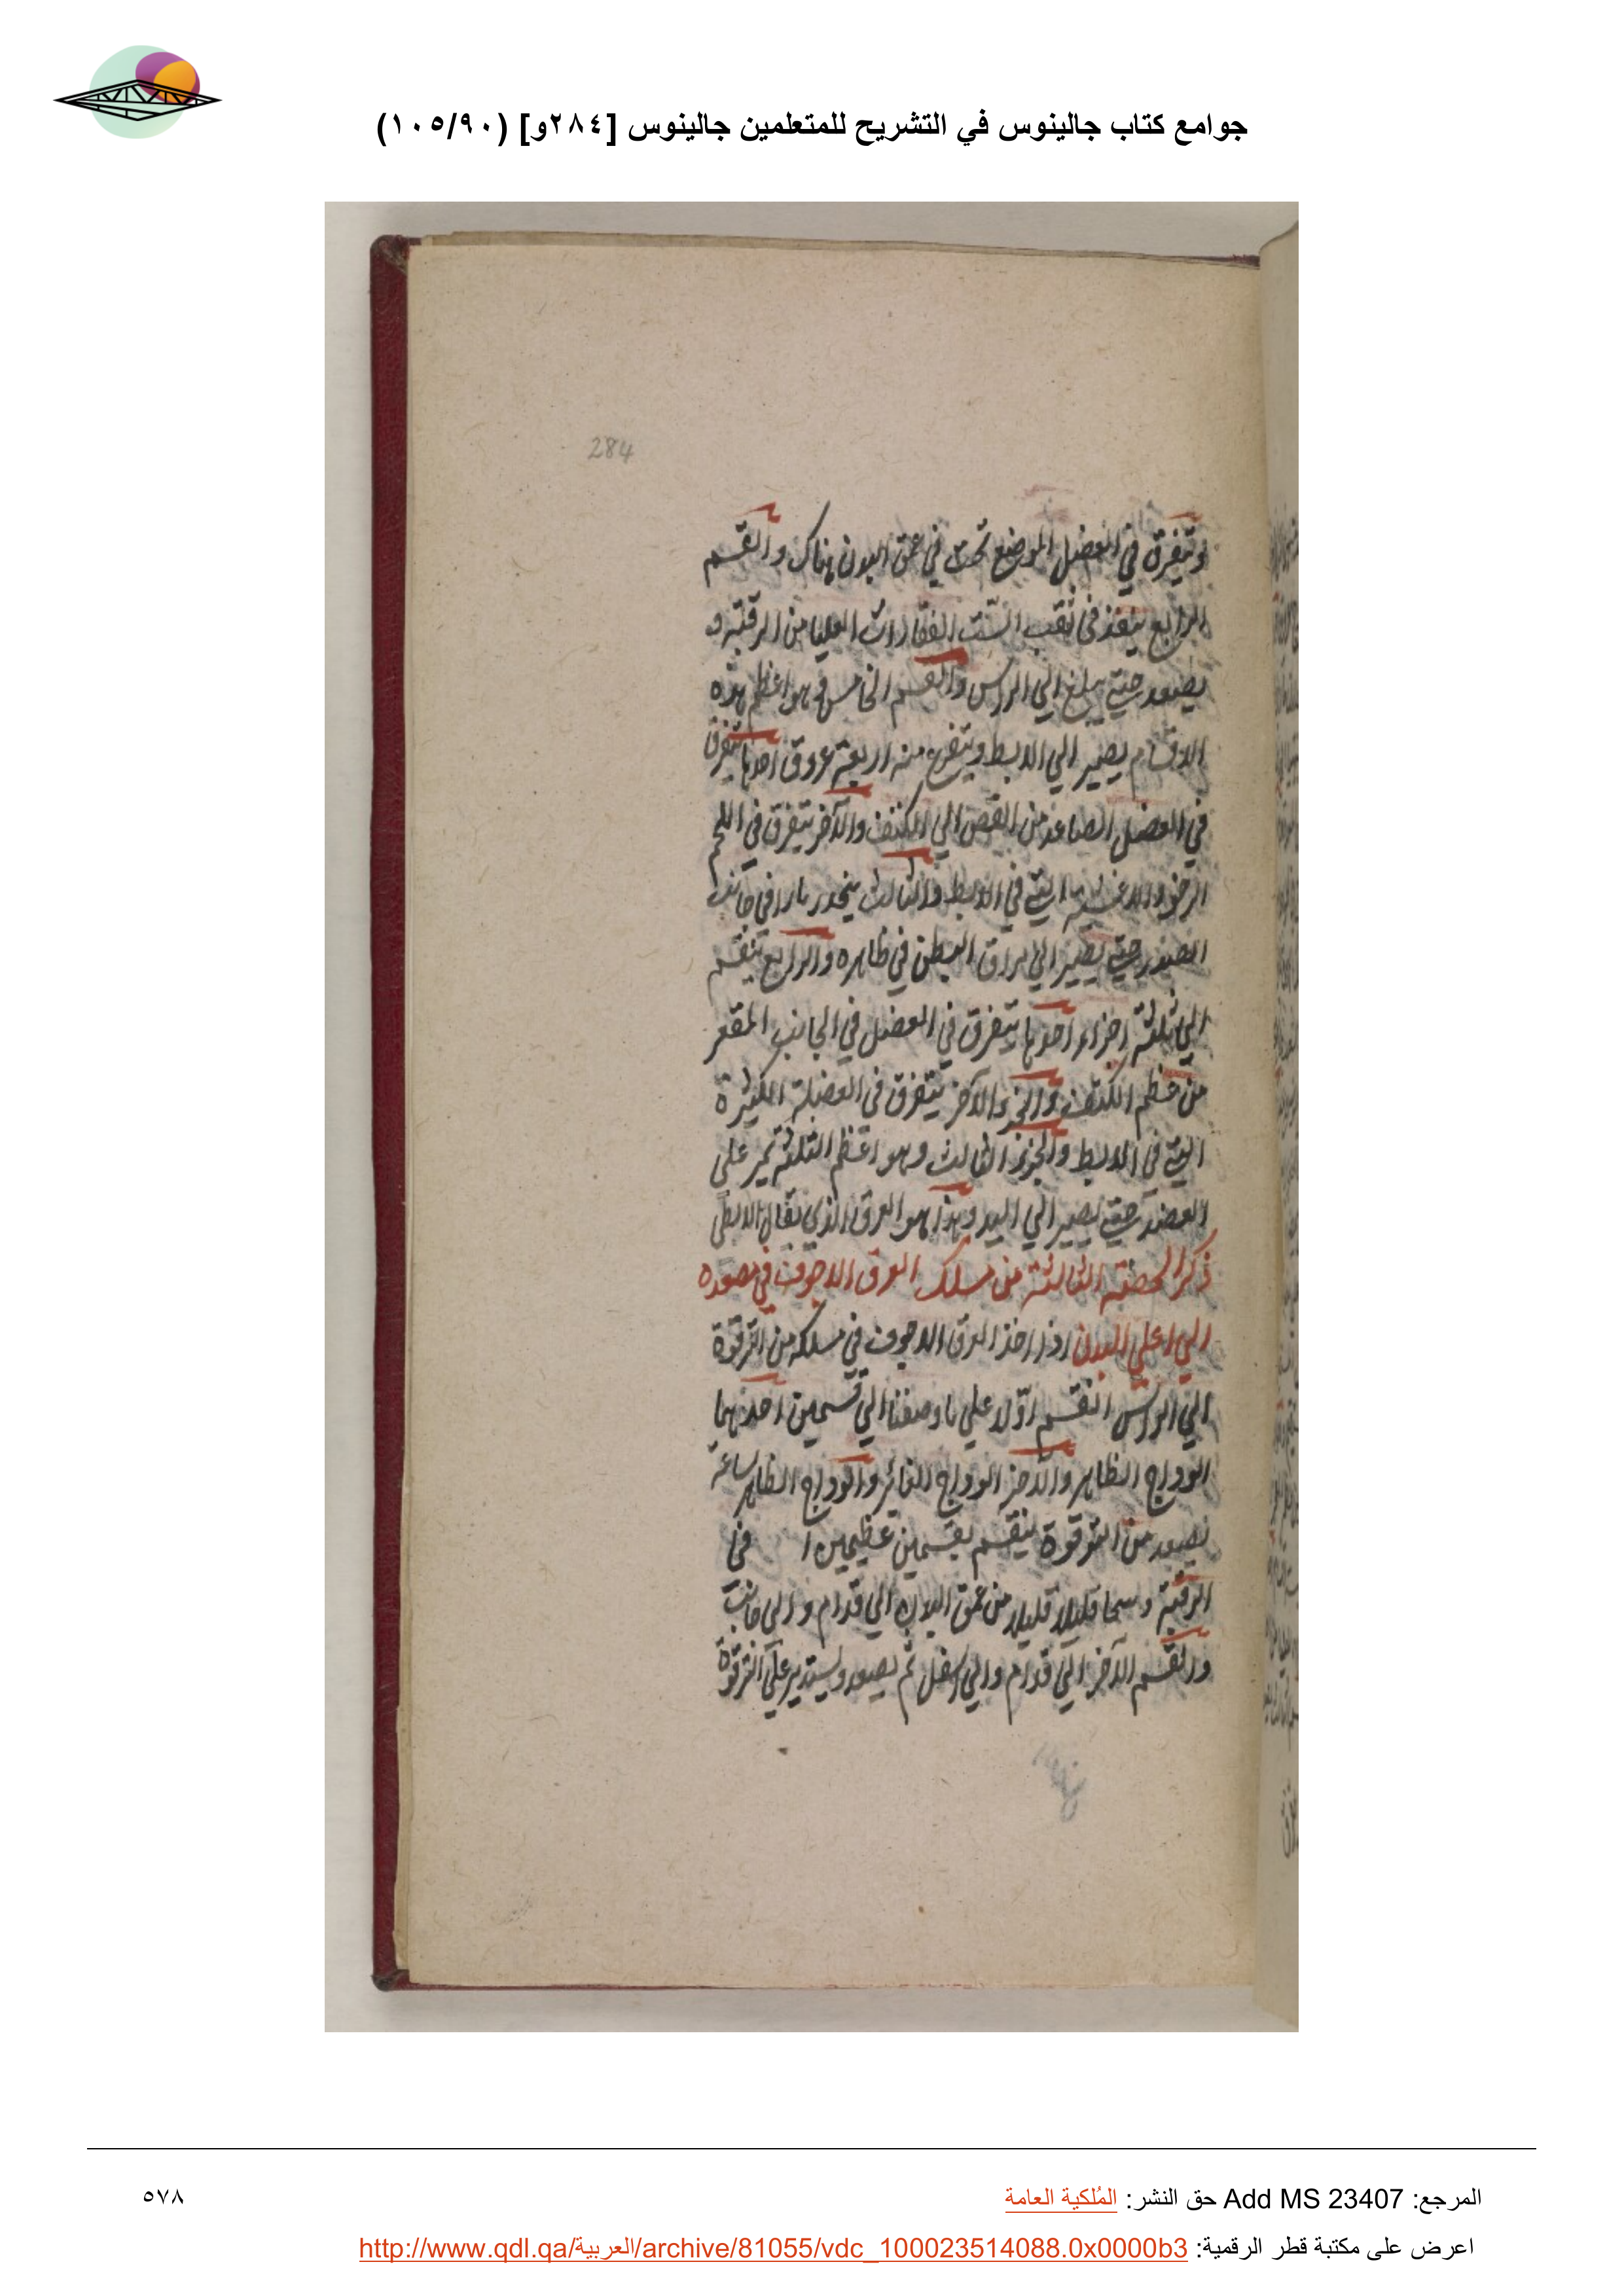 جوامع كتاب جالينوس في التشريح للمتعلمين جالينوس [٢٨٤و] (١٠٥/٩٠)
284
وتتفرق في العضل الموضع تحت في عمق البدن هناك والقسم
الرابع ينفذ في ثقب الست الفقارات العليا من الرقبة و
يصعد حتي يبلغ الي الراس والقسم الخامس وهو اعظم هذه
الاقسام يصير الي الابط ويتفرع منه اربعة عروق احدها يتفرق
في العضل الصاعد من القص الي الكتف والآخر يتفرق في اللحم
الرخو والاغشية التي في الابط والثالث ينحدر مارا في جانب
الصدر حتي يصير الي مراق البطن في ظاهره والرابع ينقسم
الي ثلثة اجزاء احدها يتفرق في العضل في الجانب المقعر
من عظم الكتف والجزو الآخر يتفرق في العضلة الكبيرة
التي في الابط والجزء الثالث وهو اعظم الثلثة يمر علي
العضد حتي يصير الي اليد وهذا هو العرق الذي يقال الابطي
ذكر الحصة الثالثة من مسلك العرق الاجوف في مصعده
الي اعلي البدن اذا اخذ العرق الاجوف في مسلكه من الترقوة
الي الراس انقسم اولا علي ما وصفنا الي قسمين احدهما
الوداج الظاهر والآخر الوداج الغائر والوداج الظاهر ساعة
يصعد من الترقوة ينقسم بقسمين عظيمين ا في
الرقبة قليلا قليلا من عمق البدن الي قدام والي جانب
والقسم الآخر الي قدام والي اسفل ثم يصعد ويستدير علي الترقوة
المرجع: Add MS 23407 حق النشر: المُلكية العامة
٥٧٨
اعرض على مكتبة قطر الرقمية: http://www.qdl.qa/العربية/archive/81055/vdc_100023514088.0x0000b3